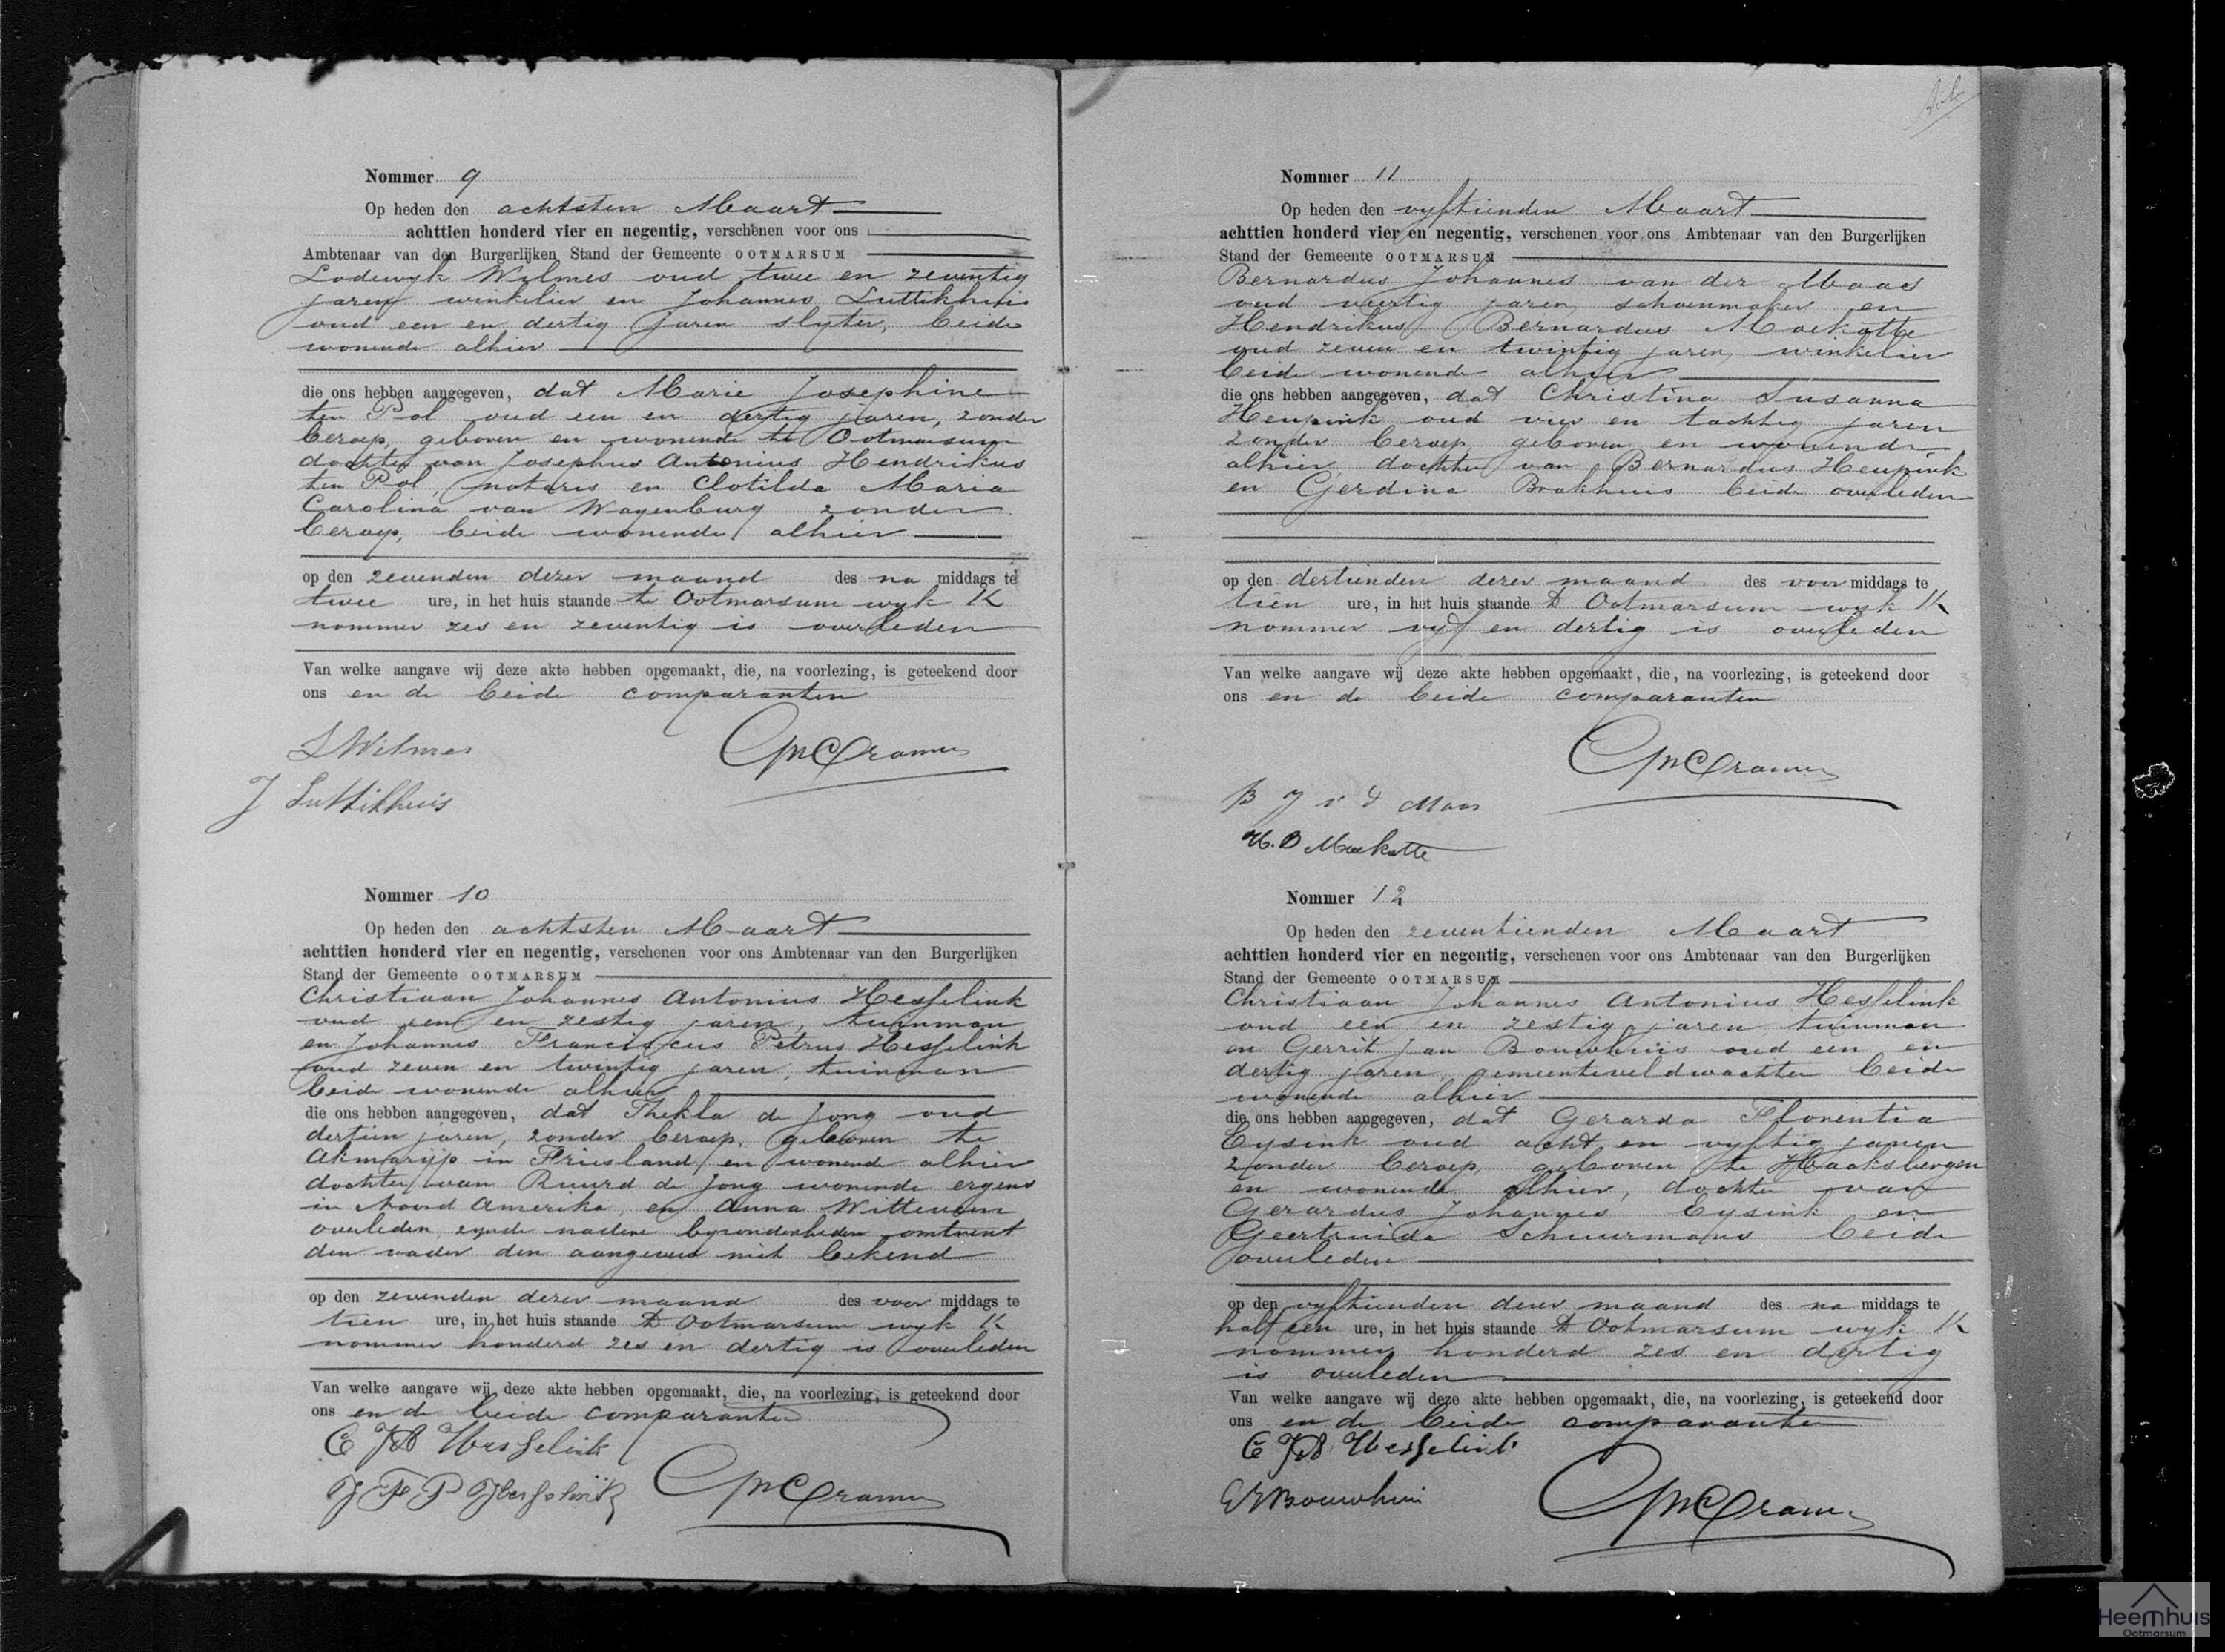 Nommer 9
Op heden den achtsten Maart
achttien honderd vier en negentig, verschenen voor ons
Ambtenaar van den Burgerlijken Stand der Gemeente OOTMARSUM
Lodewyk Wilmes oud twee en zeventig
jaren winkelier en Johannes Luttikhuis
oud een en dertig jaren slyter, beide
wonende alhier
die ons hebben aangegeven, dat Marie Josephine
ten Pol oud een en dertig jaren, zonder
beroep, geboren en wonende te Ootmarsum
dochter van Josephus Antonius Hendrikus
ten Pol, notaris en Clotilda Maria
Carolina van Wagenburg zonder
beroep, beide wonende alhier
op den zevenden dezer maand des na middags te
twee ure, in het huis staande te Ootmarsum wyk K
nommer zes en zeventig is overleden
Van welke aangave wij deze akte hebben opgemaakt, die, na voorlezing, is geteekend door
ons en de beide comparanten
L Wilmes
J Luttikhuis
Cramer
Nommer 10
Op heden den achtsten Maart
achttien honderd vier en negentig, verschenen voor ons Ambtenaar van den Burgerlijken
Stand der Gemeente OOTMARSUM
Christiaan Johannes Antonius Hesselink
oud een en zestig jaren, tuinman
en Johannes Franciscus Petrus Hesselink
oud zeven en twintig jaren, tuinman
beide wonende alhier
die ons hebben aangegeven, dat Thekla de Jong oud
dertien jaren, zonder beroep, geboren te
Akmarijp in Friesland en wonende alhier
dochter van Ruurd de Jong wonende ergens
in Noord Amerika, en Anna Witteveen
overleden, zynde nadere byzonderheden omtrent
den vader den aangevers niet bekend
op den zevenden dezer maand des voor middags te
tien ure, in het huis staande te Ootmarsum wyk K
nommer honderd zes en dertig is overleden
Van welke aangave wij deze akte hebben opgemaakt, die, na voorlezing, is geteekend door
ons en de beide comparanten
C J A Hesselink
J F P Hesselink
Cramer
Nommer 11
Op heden den vyftienden Maart
achttien honderd vier en negentig, verschenen voor ons Ambtenaar van den Burgerlijken
Stand der Gemeente OOTMARSUM
Bernardus Johannes van der Maas
oud veertig jaren, schoenmaker en
Hendrikus Bernardus Moekotte
oud zeven en twintig jaren, winkelier
beide wonende alhier
die ons hebben aangegeven, dat Christina Susanna
Heupink oud vier en tachtig jaren
zonder beroep, geboren en wonende
alhier, dochter van Bernardus Heupink
en Gerdina Brakhuis beide overleden
op den dertienden dezer maand des voor middags te
tien ure, in het huis staande te Ootmarsum wyk K
nommer vyf en dertig is overleden
Van welke aangave wij deze akte hebben opgemaakt, die, na voorlezing, is geteekend door
ons en de beide comparanten
Cramer
B J v d Maas
H. B Moekotte
Nommer 12
Op heden den zeventienden Maart
achttien honderd vier en negentig, verschenen voor ons Ambtenaar van den Burgerlijken
Stand der Gemeente OOTMARSUM
Christiaan Johannes Antonius Hesselink
oud een en zestig jaren tuinman
en Gerrit Jan Bouwhuis oud een en
dertig jaren, gemeenteveldwachter beide
wonende alhier
die ons hebben aangegeven, dat Gerarda Florentia
Eysink oud acht en vyftig jaren
zonder beroep, geboren te Haaksbergen
en wonende alhier, dochter van
Gerardus Johannes Eysink en
Geertruida Schuurmans beide
overleden
op den vyftienden dezer maand des na middags te
half een ure, in het huis staande te Ootmarsum wyk K
nommer honderd zes en dertig
is overleden
Van welke aangave wij deze akte hebben opgemaakt, die, na voorlezing, is geteekend door
ons en de beide comparanten
C J A Hesselink
Bouwhuis
Cramer
Heemhuis
Ootmarsum